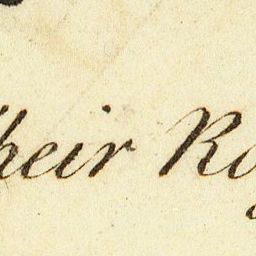 heir Ro